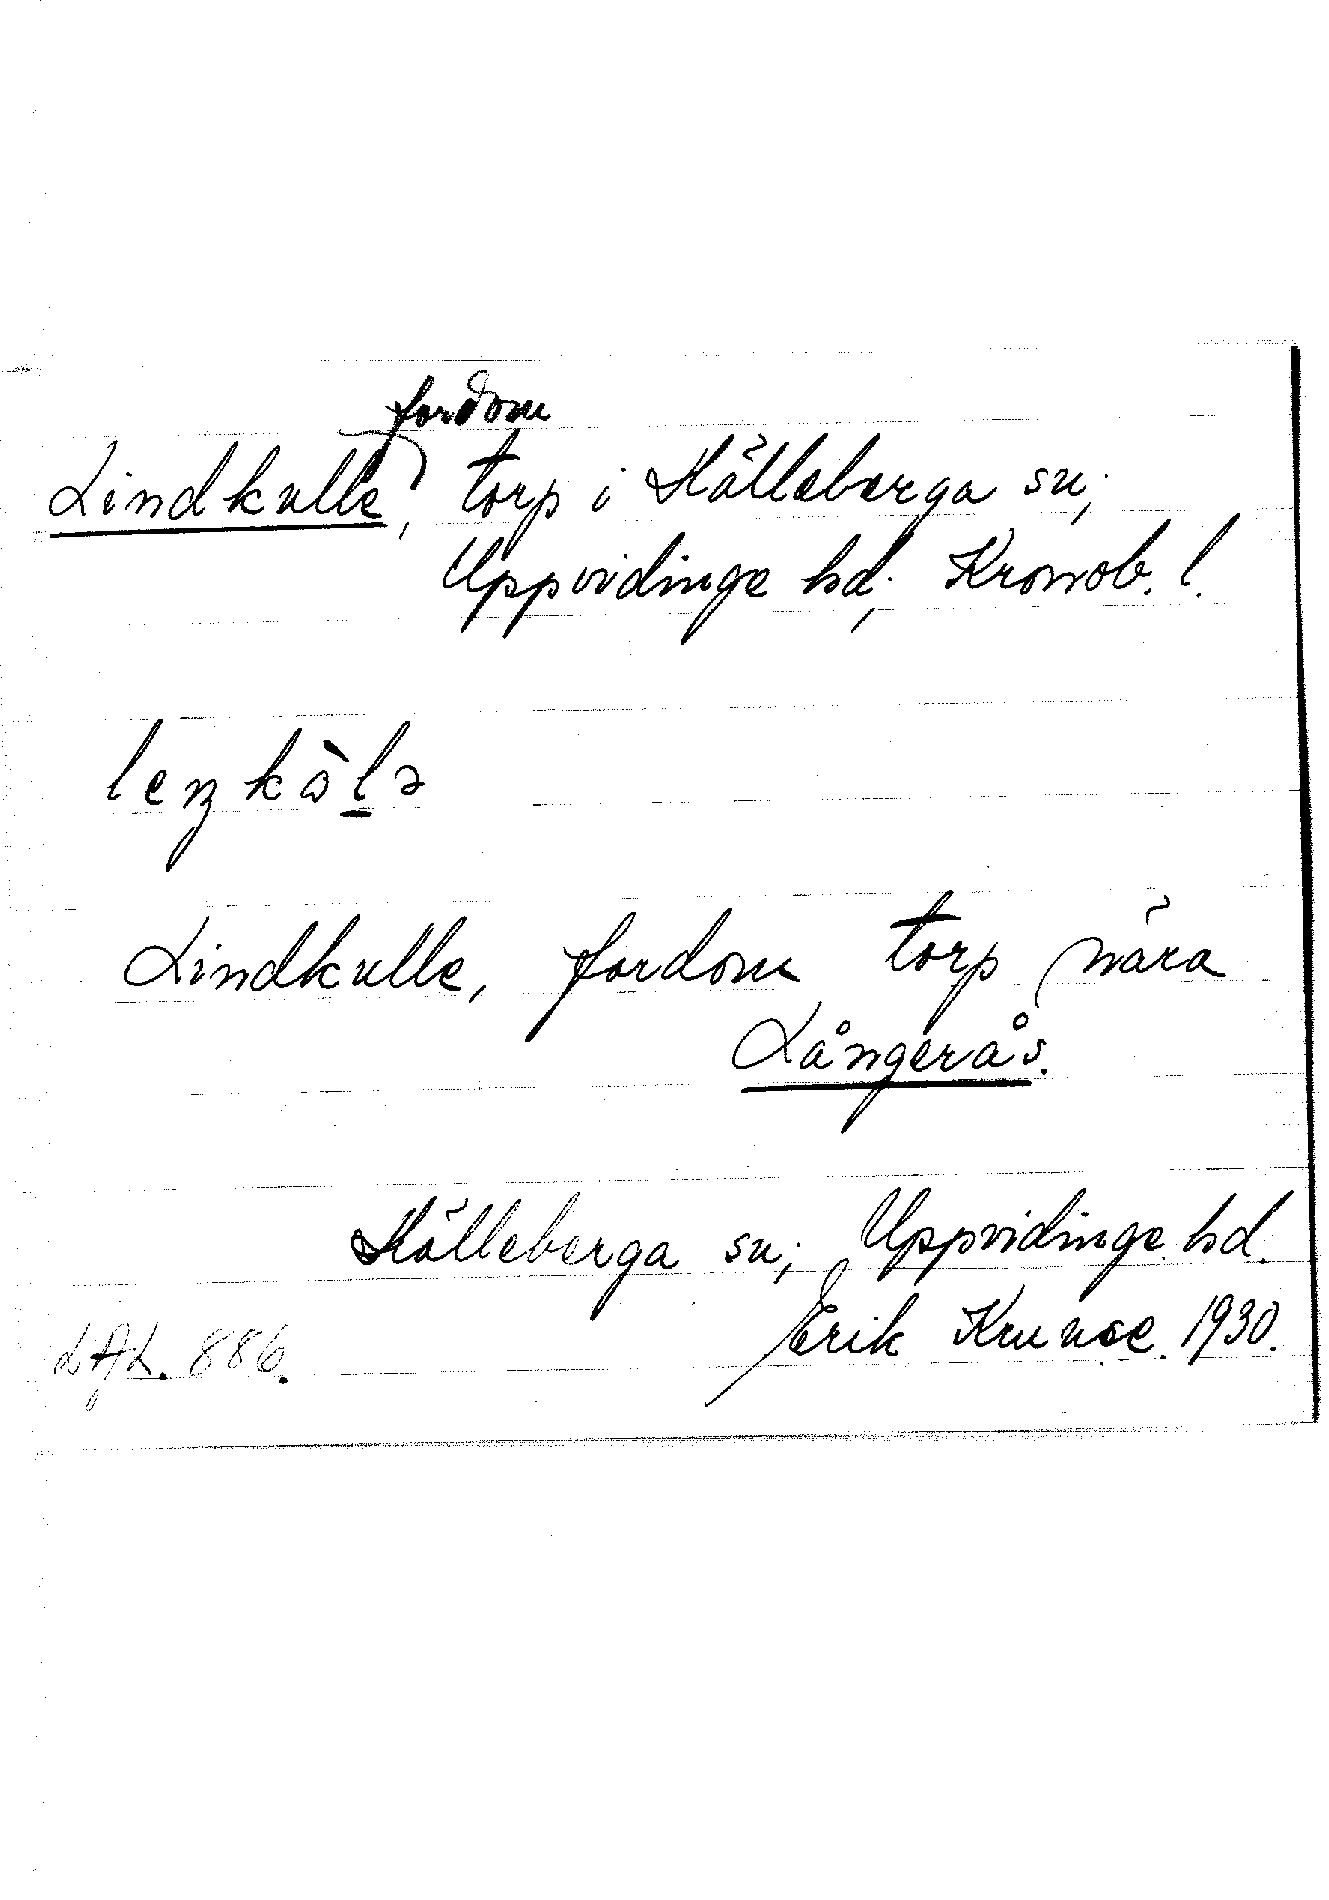 fordom
Lindkulle, torp i Källeberga sn;
Uppvidinge hd; Kronob. l.
Lindkulle, fordom torp nära
Långerås.
Källeberga sn; Uppvidinge hd.
Erik Kruuse 1930.
LAL. 886.